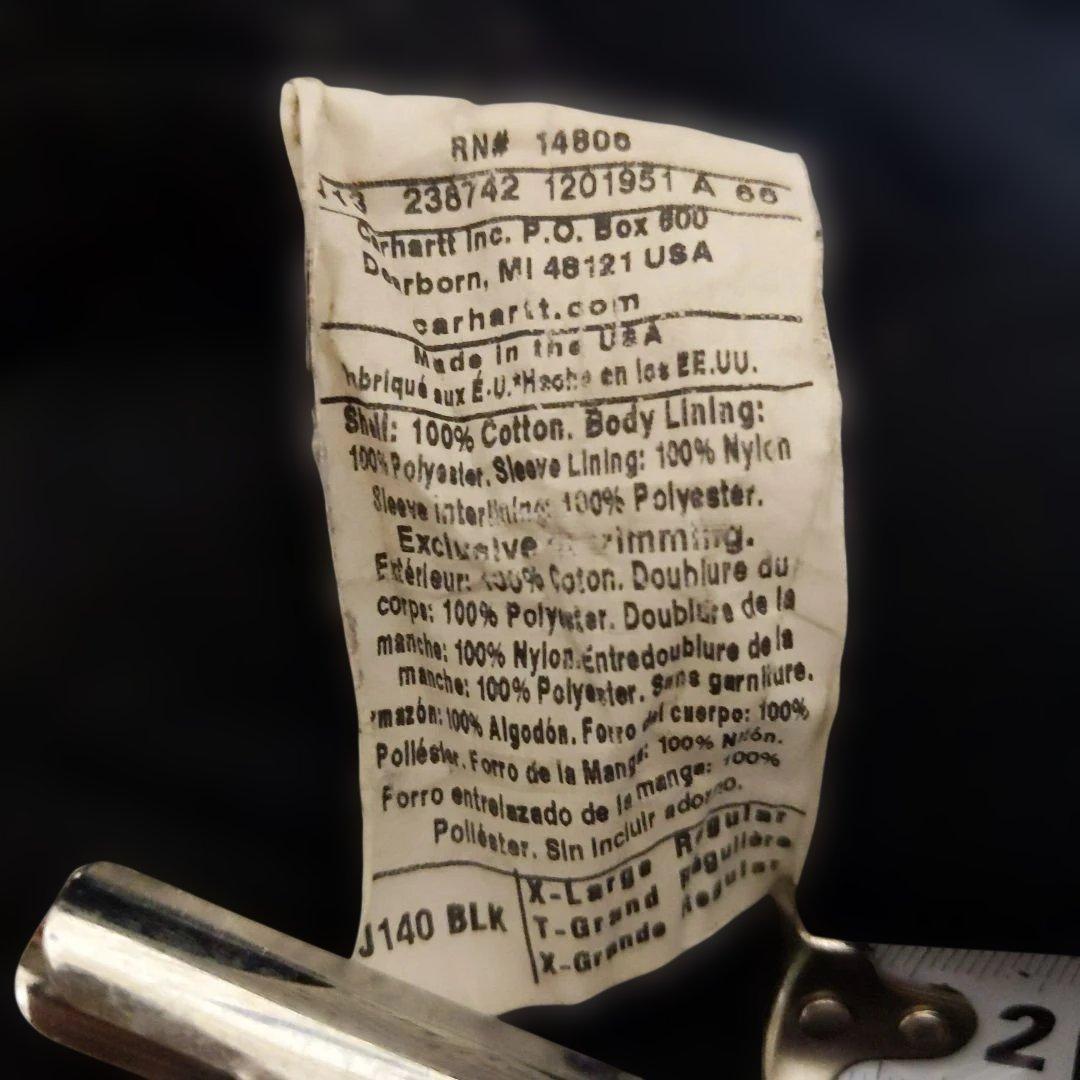 RN# 14806
113 238742 1201951 A 66
Carhartt Inc. P.O. Box 600
Dearborn, MI 48121 USA
carhartt.com
Made in the USA
abriqué aux É.U.*Hecho en los EE.UU.
Shell: 100% Cotton. Body Lining:
100% Polyester. Sleeve Lining: 100% Nylon
Sleeve interlining: 100% Polyester.
Exclusive trimming.
Extérieur: 100% Coton. Doublure du
corps: 100% Polyester. Doublure de la
manche: 100% Nylon.Entredoublure de la
manche: 100% Polyester. Sans garniture.
rmazón: 100% Algodón. Forro del cuerpo: 100%
Poliéster. Forro de la Manga: 100% Nilón.
Forro entrelazado de la manga: 100%
Poliéster. Sin incluir adorno.
J140 BLK
X-Large Regular
T-Grand Régulière
X-Grande Regular
2